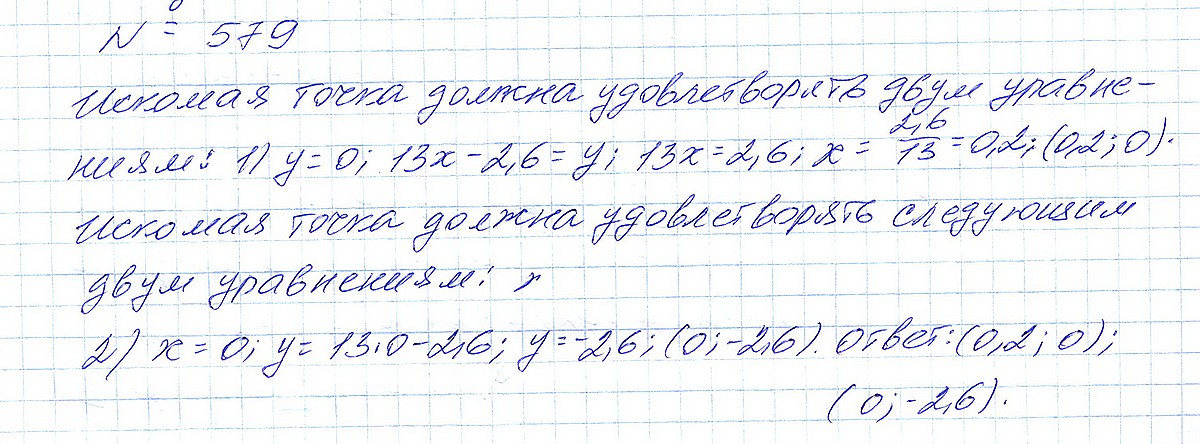 № 579
Искомая точка должна удовлетворять двум уравне-
ниям: 1) y = 0; 13x - 2,6 = y; 13x = 2,6; x = 2,6/13 = 0,2; (0,2; 0).
Искомая точка должна удовлетворять следующим
двум уравнениям:
2) x = 0; y = 13·0 - 2,6; y = -2,6; (0; -2,6). Ответ: (0,2; 0);
(0; -2,6).